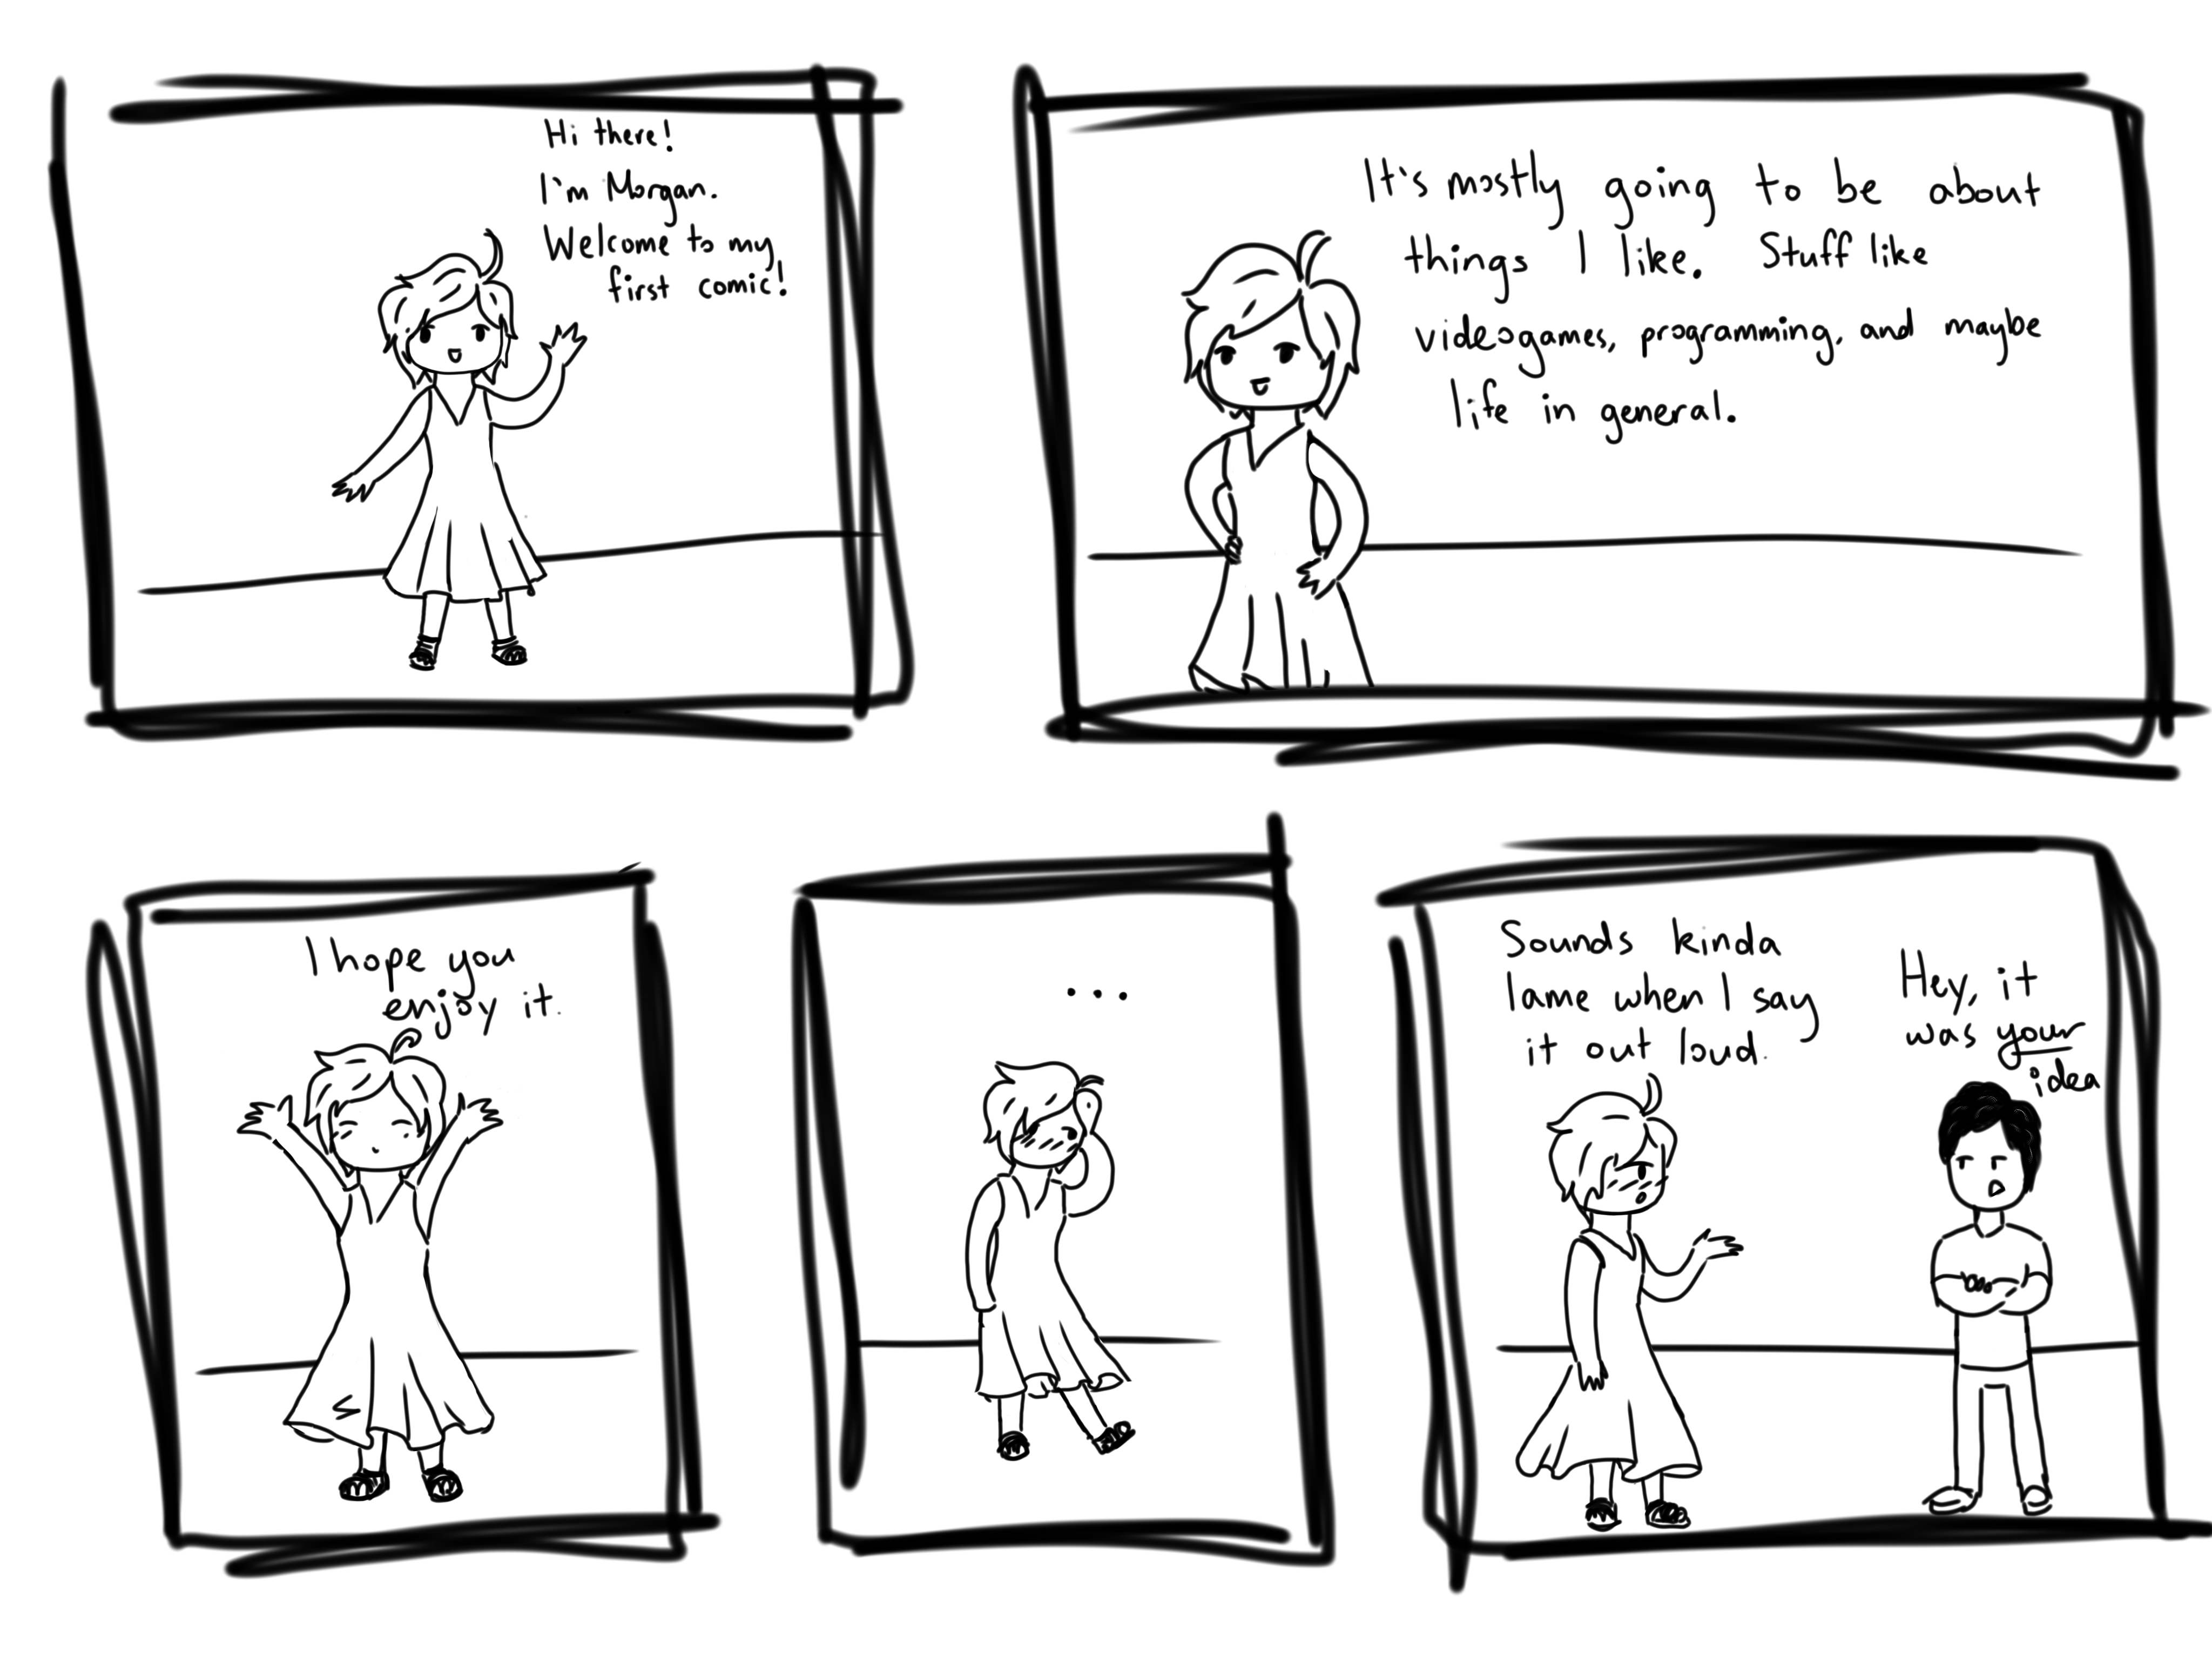 Hi there!
I'm Morgan.
Welcome to my
first comic!
It's mostly going to be about
things I like. Stuff like
videogames, programming, and maybe
life in general.
I hope you
enjoy it.
...
Sounds kinda
lame when I say
it out loud.
Hey, it
was your
idea